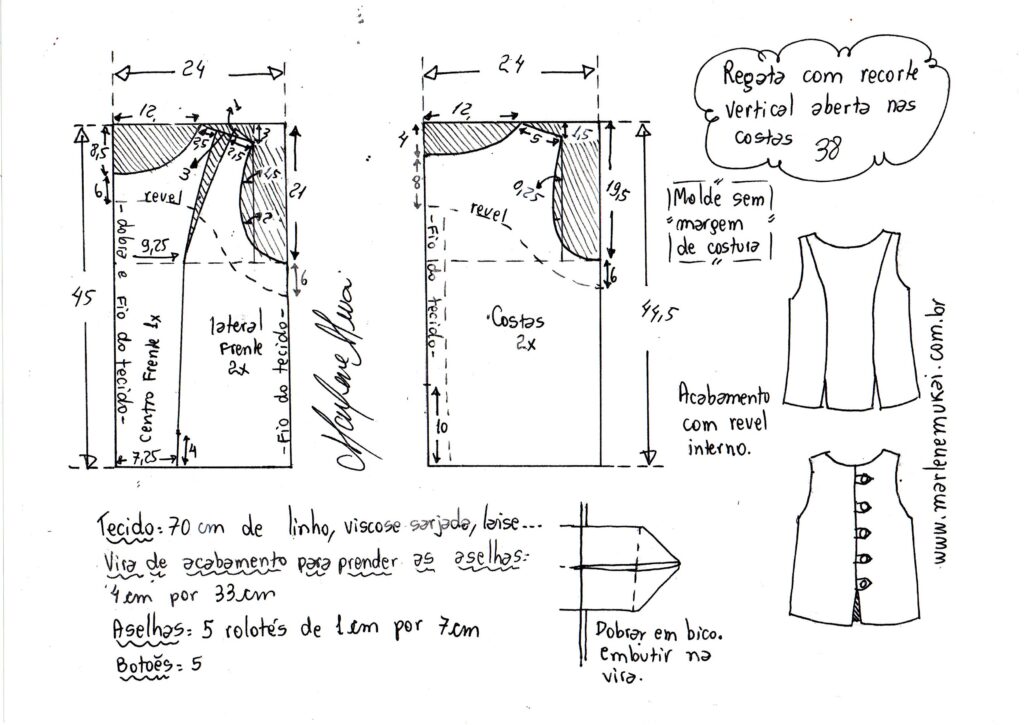 24
12,
1
8,5
6
3
3,5
2,5
3
4,5
2
21
6
revel
9,25
45
- dobra e Fio do tecido -
Centro Frente 1x
lateral
Frente
2x
- Fio do tecido -
4
7,25
Marlene Mukai
24
12
4
8
5
1,5
0,25
19,5
revel
6
- Fio do tecido -
Costas
2x
44,5
10
Regata com recorte
vertical aberta nas
costas 38
Molde sem
margem
de costura
Acabamento
com revel
interno.
www.marlenemukai.com.br
Tecido: 70 cm de linho, viscose sarjada, laise...
Vira de acabamento para prender as aselhas:
4cm por 33cm
Aselhas: 5 rolotés de 1cm por 7cm
Botoẽs: 5
Dobrar em bico.
embutir na
vira.